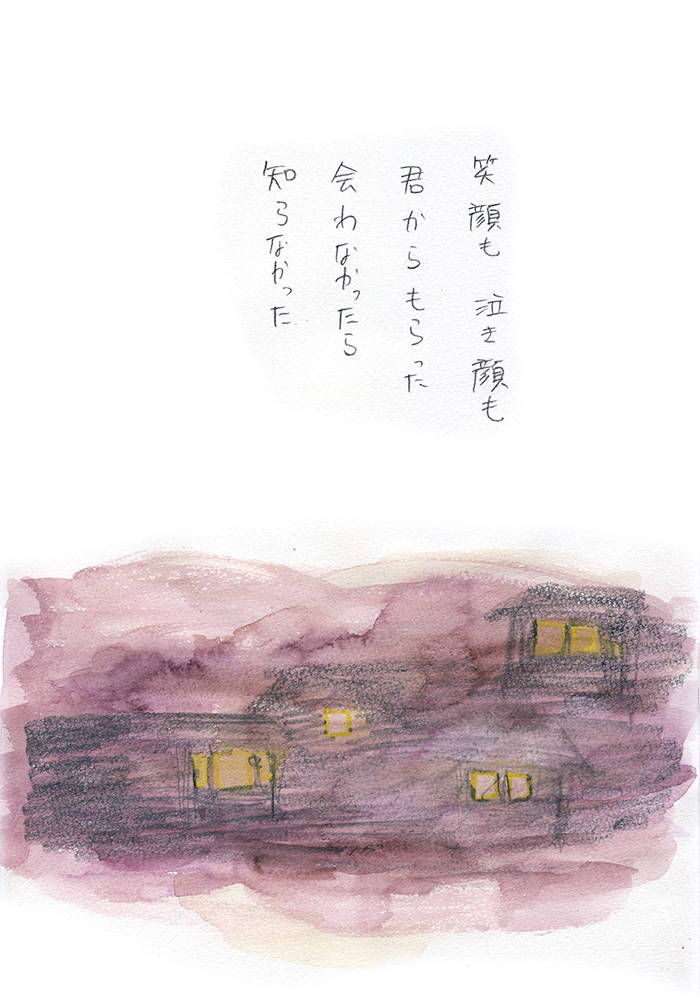 笑顔も 泣き顔も
君からもらった
会わなかったら
知らなかった